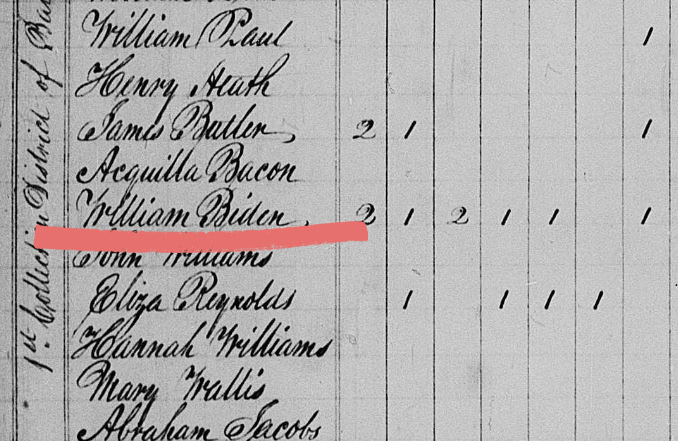 1st Collection District of
William Paul 1
Henry Heath
James Butler 2 1 1
Acquilla Bacon
William Biden 2 1 2 1 1 1
John Williams
Eliza Reynolds 1 1 1 1
Hannah Williams
Mary Wallis
Abraham Jacobs